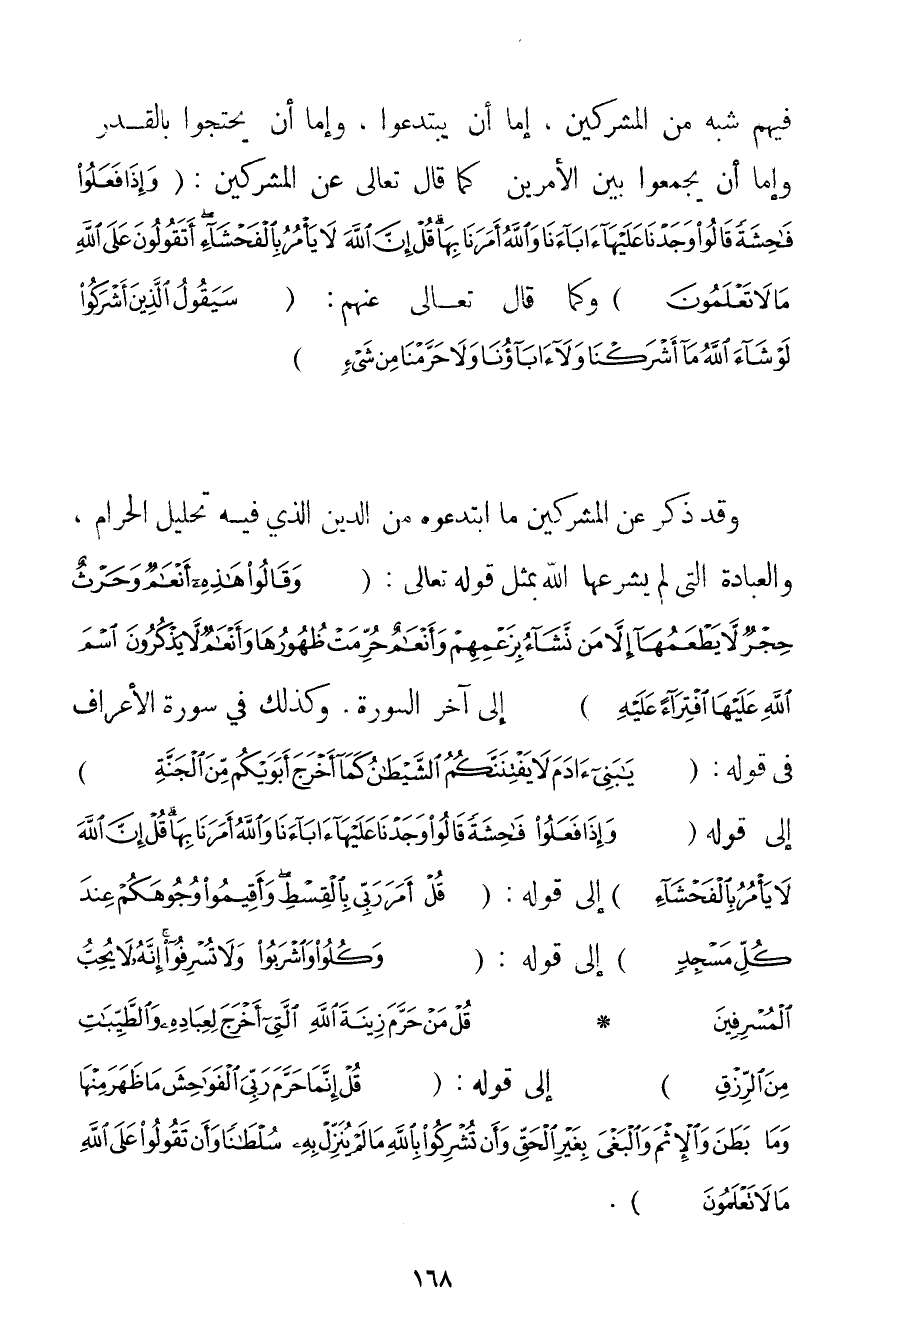 فيهم شبه من المشركين ، إما أن يبتدعوا ، وإما أن يحتجوا بالقــدر
وإما أن يجمعوا بين الأمرين كما قال تعالى عن المشركين : ( وَإِذَا فَعَلُوا۟
فَـٰحِشَةً قَالُوا۟ وَجَدْنَا عَلَيْهَآ ءَابَآءَنَا وَٱللَّهُ أَمَرَنَا بِهَا ۗ قُلْ إِنَّ ٱللَّهَ لَا يَأْمُرُ بِٱلْفَحْشَآءِ ۖ أَتَقُولُونَ عَلَى ٱللَّهِ
مَا لَا تَعْلَمُونَ ) وكما قال تعــالى عنهم : ( سَيَقُولُ ٱلَّذِينَ أَشْرَكُوا۟
لَوْ شَآءَ ٱللَّهُ مَآ أَشْرَكْنَا وَلَآ ءَابَآؤُنَا وَلَا حَرَّمْنَا مِن شَىْءٍ )
وقد ذكر عن المشركين ما ابتدعوه من الدين الذي فيــه تحليل الحرام ،
والعبادة التى لم يشرعها الله بمثل قوله تعالى : ( وَقَالُوا۟ هَـٰذِهِۦٓ أَنْعَـٰمٌ وَحَرْثٌ
حِجْرٌ لَّا يَطْعَمُهَآ إِلَّا مَن نَّشَآءُ بِزَعْمِهِمْ وَأَنْعَـٰمٌ حُرِّمَتْ ظُهُورُهَا وَأَنْعَـٰمٌ لَّا يَذْكُرُونَ ٱسْمَ
ٱللَّهِ عَلَيْهَا ٱفْتِرَآءً عَلَيْهِ ) إلى آخر السورة . وكذلك في سورة الأعراف
فى قوله : ( يَـٰبَنِىٓ ءَادَمَ لَا يَفْتِنَنَّكُمُ ٱلشَّيْطَـٰنُ كَمَآ أَخْرَجَ أَبَوَيْكُم مِّنَ ٱلْجَنَّةِ )
إلى قوله ( وَإِذَا فَعَلُوا۟ فَـٰحِشَةً قَالُوا۟ وَجَدْنَا عَلَيْهَآ ءَابَآءَنَا وَٱللَّهُ أَمَرَنَا بِهَا ۗ قُلْ إِنَّ ٱللَّهَ
لَا يَأْمُرُ بِٱلْفَحْشَآءِ ) إلى قوله : ( قُلْ أَمَرَ رَبِّى بِٱلْقِسْطِ ۖ وَأَقِيمُوا۟ وُجُوهَكُمْ عِندَ
كُلِّ مَسْجِدٍ ) إلى قوله : ( وَكُلُوا۟ وَٱشْرَبُوا۟ وَلَا تُسْرِفُوٓا۟ ۚ إِنَّهُۥ لَا يُحِبُّ
ٱلْمُسْرِفِينَ * قُلْ مَنْ حَرَّمَ زِينَةَ ٱللَّهِ ٱلَّتِىٓ أَخْرَجَ لِعِبَادِهِۦ وَٱلطَّيِّبَـٰتِ
مِنَ ٱلرِّزْقِ ) إلى قوله : ( قُلْ إِنَّمَا حَرَّمَ رَبِّىَ ٱلْفَوَٰحِشَ مَا ظَهَرَ مِنْهَا
وَمَا بَطَنَ وَٱلْإِثْمَ وَٱلْبَغْىَ بِغَيْرِ ٱلْحَقِّ وَأَن تُشْرِكُوا۟ بِٱللَّهِ مَا لَمْ يُنَزِّلْ بِهِۦ سُلْطَـٰنًا وَأَن تَقُولُوا۟ عَلَى ٱللَّهِ
مَا لَا تَعْلَمُونَ ) .
١٦٨